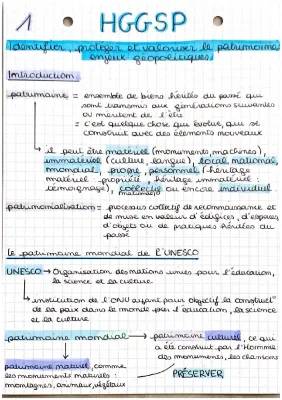 1 HGGSP
Identifier, protéger et valoriser le patrimoine
enjeux géopolitiques
Introduction
patrimoine = ensemble de biens hérités du passé qui
sont transmis aux générations suivantes
ou méritent de l'être
= c'est quelque chose qui évolue, qui se
construit avec des éléments nouveaux
↳ il peut être matériel (monuments, machines),
immatériel (culture, langue), local, national,
mondial, propre, personnel (héritage
matériel : propriété, héritage immatériel :
témoignage), collectif ou encore individuel
patrimonialisation = processus collectif de reconnaissance et
de mise en valeur d'édifices, d'espaces
d'objets ou de pratiques héritées du
passé
Le patrimoine mondial de l'UNESCO
UNESCO → Organisation des nations unies pour l'éducation,
la science et la culture
↳ institution de l'ONU ayant pour objectif la construct°
de la paix dans le monde par l'éducation, la science
et la culture
patrimoine mondial → patrimoine culturel, ce qui
a été construit par l'Homme :
des monuments, les chansons
patrimoine naturel, comme
les monuments naturels :
montagnes, animaux, végétaux
PRÉSERVER